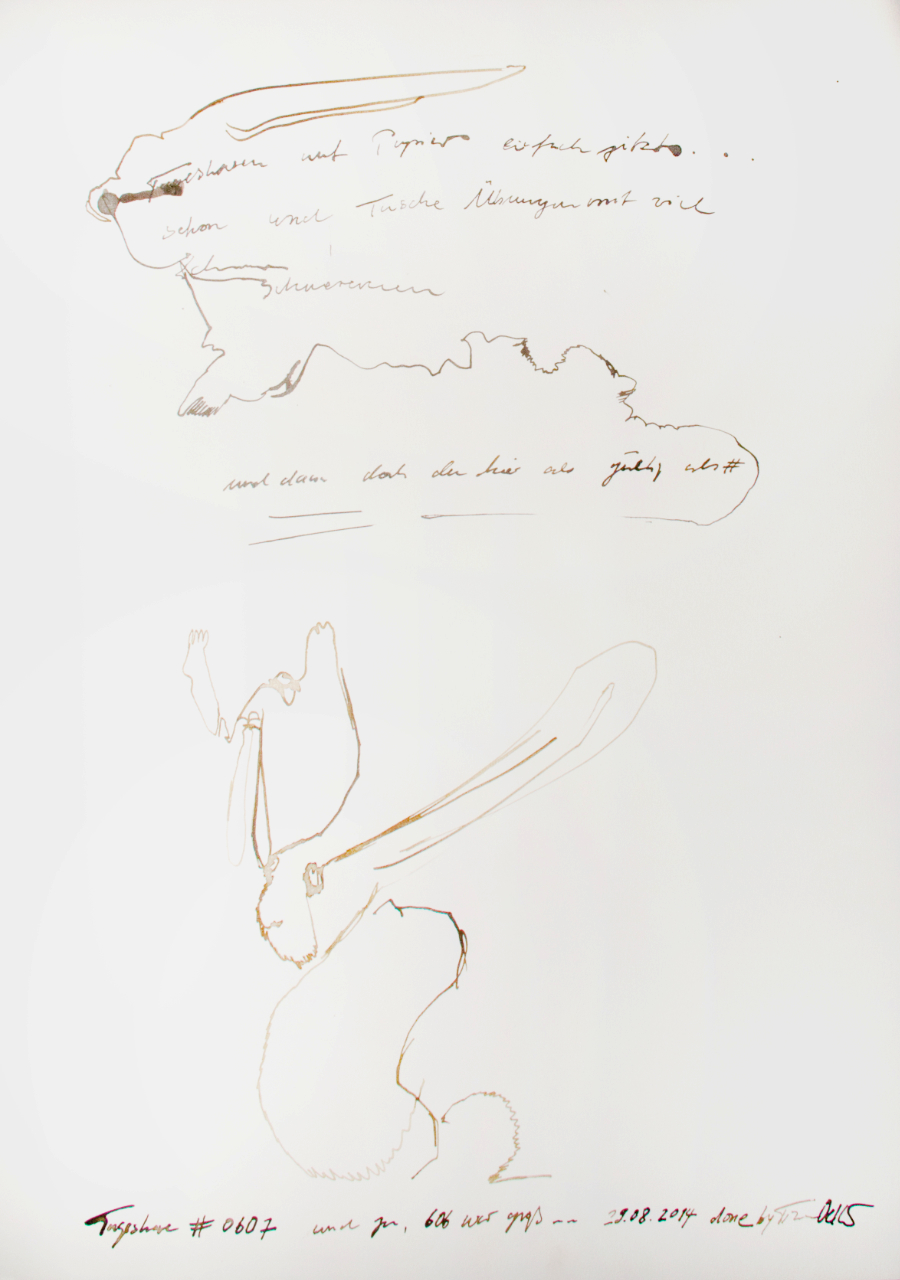 Tageshasen auf Papier einfach
schon und Tusche Übungen mit viel
und dann doch der hier als gültig als #
Tageshase # 0607 und ja, 606 war groß -- 29.08.2014 done by